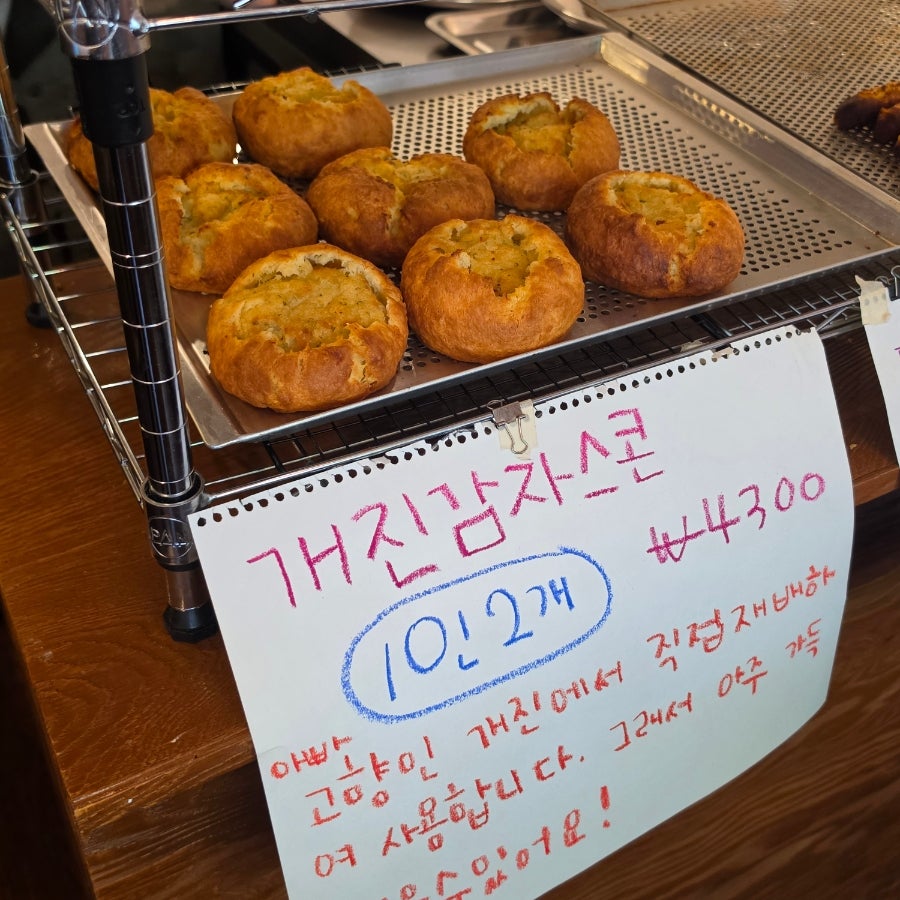 개진감자스콘
₩4300
1인 2개
아빠
고향인 개진에서 직접재배하
여 사용합니다. 그래서 아주 가득
수있어요!